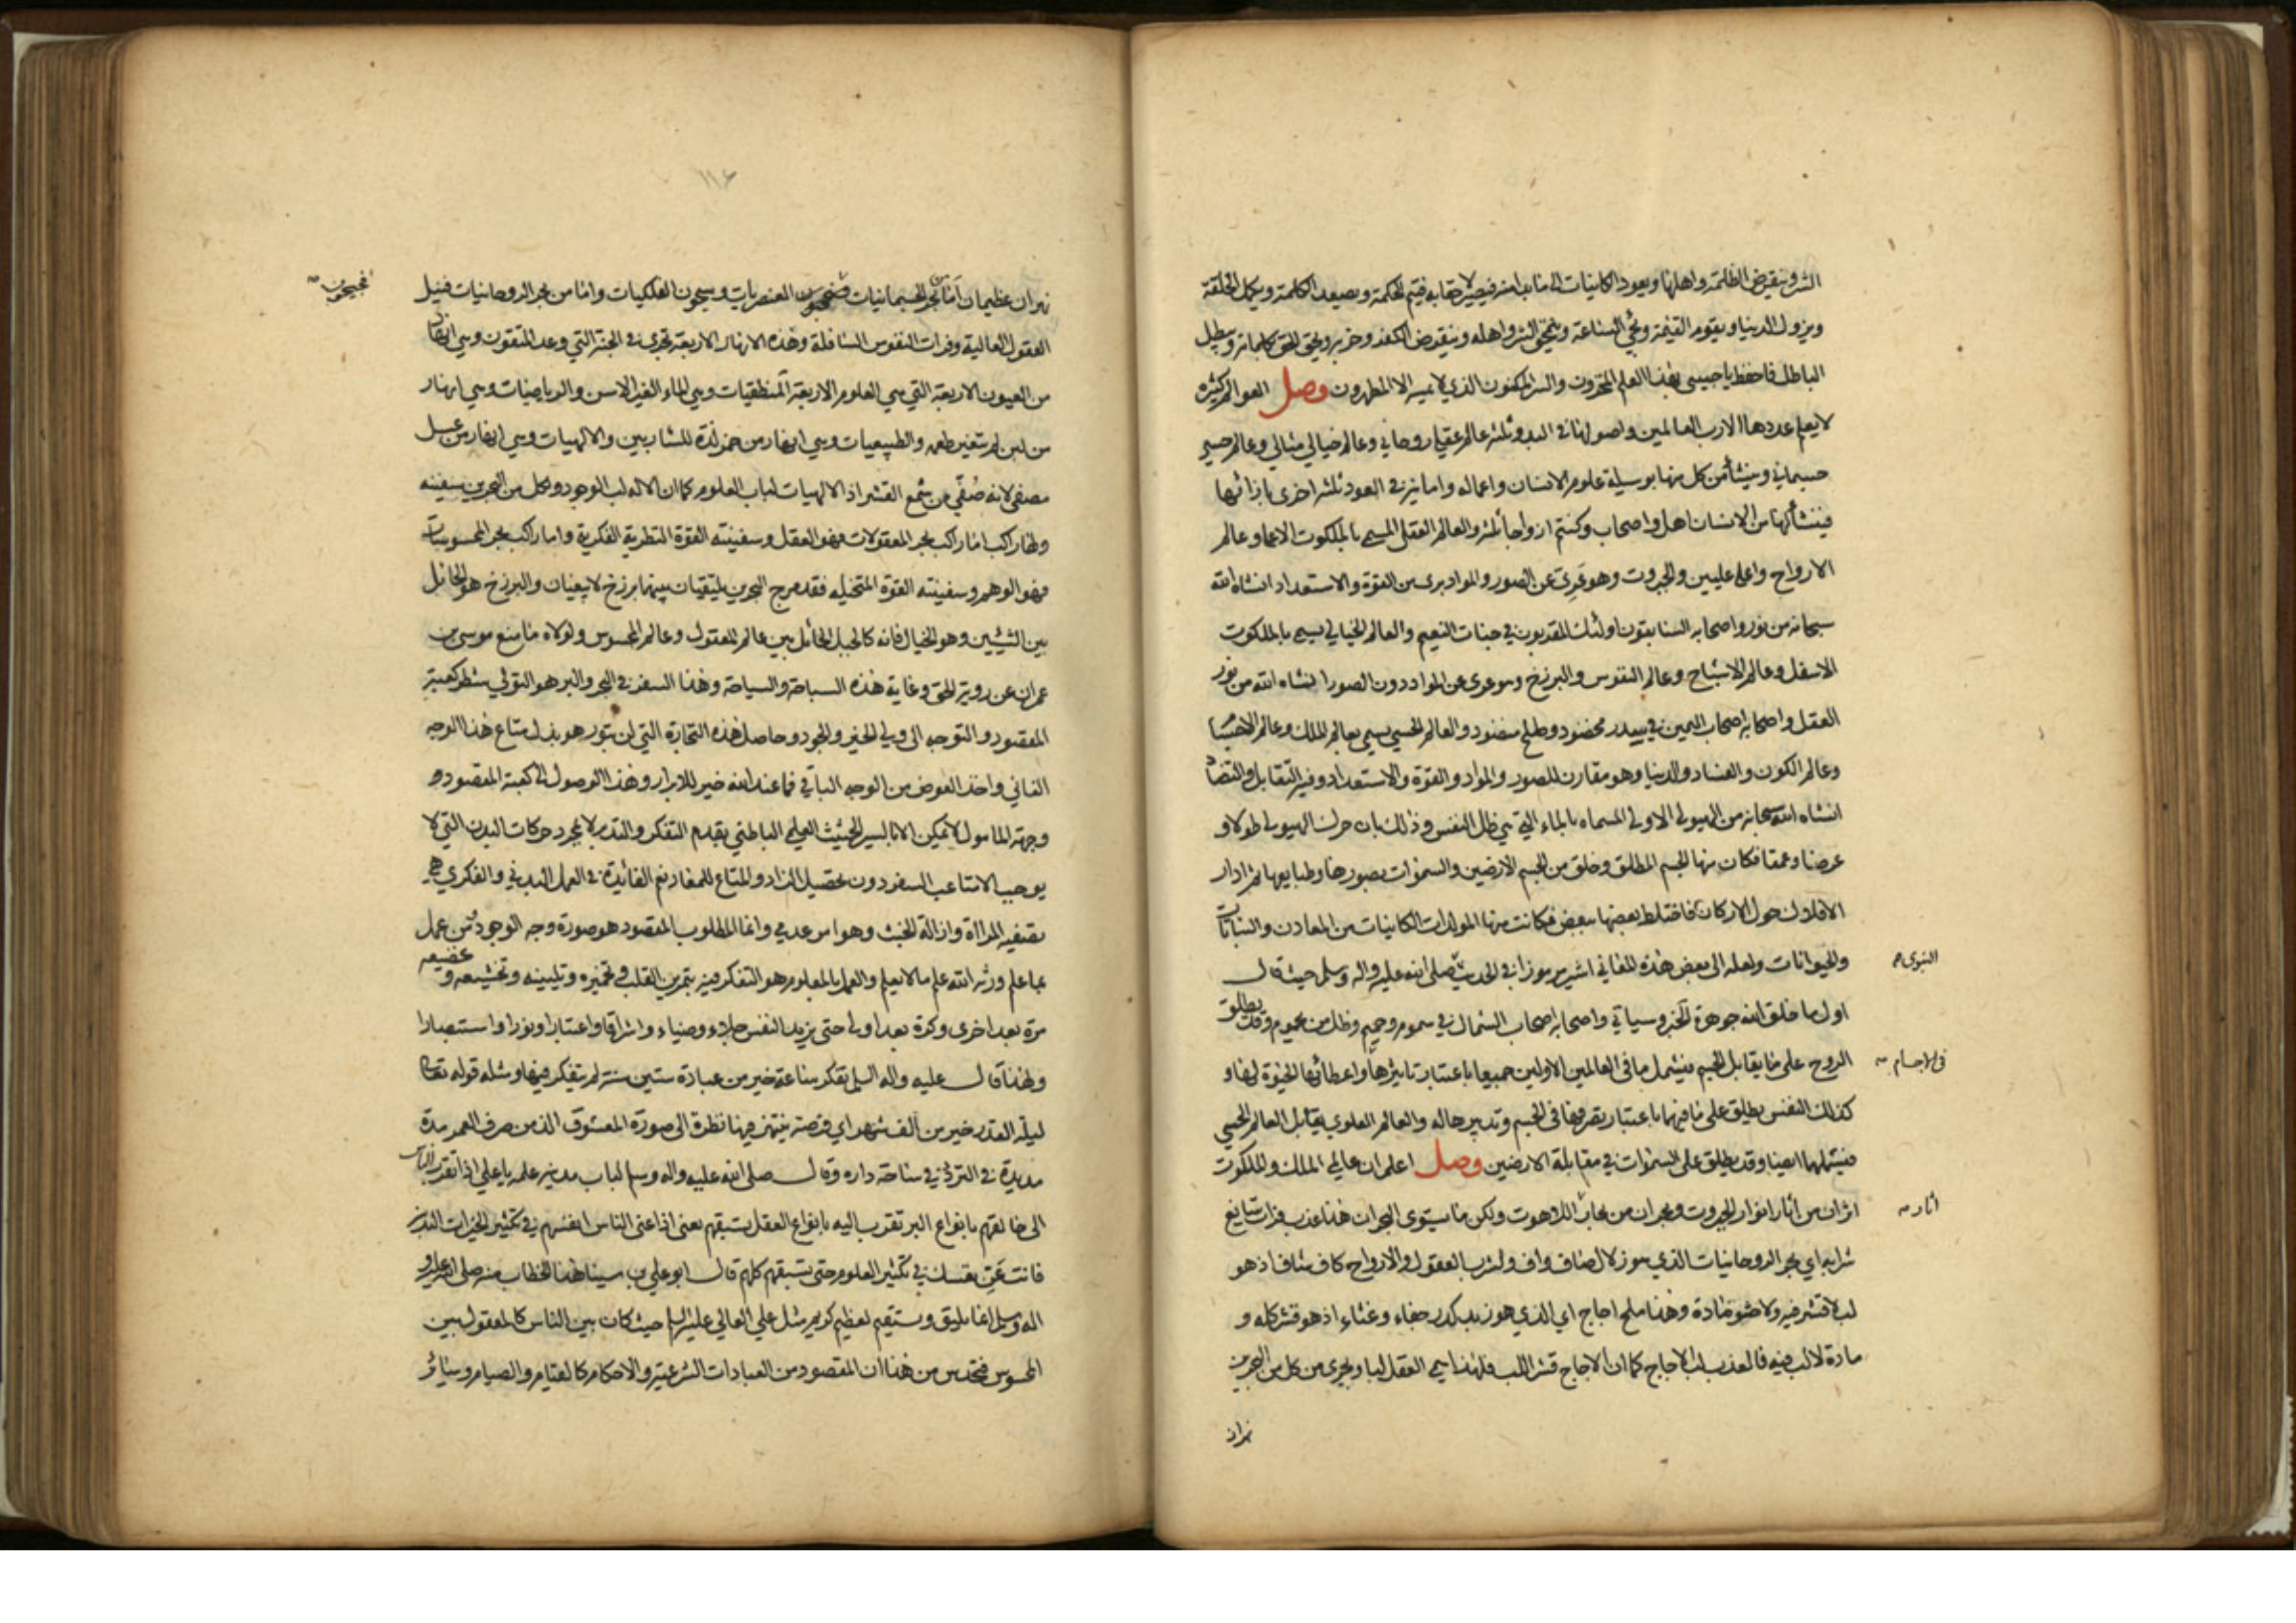 الشر وينقرض الظلمة واهلها ويعود الكاينات الى ما بدا منه فيصير لاحقا به فيتم الحكمة ويصعد الكلمة ويكمل الخلقة
ويزول الدنيا ويقوم القيمة ويجئ الساعة وينمحق الشر واهله وينقرض الكفر وحزبه ويحق الحق بكلماته ويبطل
الباطل فاحفظ يا حبيبي هذا العلم المخزون والسر المكنون الذي لا يمسه الا المطهرون وصل العوالم كثيرة
لا يعلم عددها الا رب العالمين واصولها في البدو ثلثة عالم عقلي روحاني وعالم خيالي مثالي وعالم حسي
جسماني وينشأ من كل منها بوسيلة علوم الانسان واعماله وامانيه في العود ثلثة اخرى بازائها
فينشأ لها من الانسان اهل واصحاب وكنتم ازواجا ثلثة والعالم العقلي المسمى بالملكوت الاعلى وعالم
الارواح واعلى عليين والجبروت وهو عَرِيّ عن الصور والمواد برى من القوة والاستعداد انشاه الله
سبحانه من نور واصحابه السابقون اولئك المقربون في جنات النعيم والعالم الخيالي يسمى بالملكوت
الاسفل وعالم الاشباح وعالم النفوس والبرزخ وهو عرى عن المواد دون الصور انشاه الله من نور
العقل واصحابه اصحاب اليمين في سدر مخضود وطلح منضود والعالم الحسي يسمى بعالم الملك وعالم الاجسا
وعالم الكون والفساد والدنيا وهو مقارن للصور والمواد والقوة والاستعداد وفيه التقابل والتضاد
انشاه الله سبحانه من الهيولى الاولى المسماه بالماء التي هي ظل النفس وذلك بان حرك الهيولى طولا و
عرضا وعمقا فكان منها الجسم المطلق وخلق من الجسم الارضين والسموات بصورها وطبايعها ثم ادار
الافلاك حول الاركان فاختلط بعضها ببعض فكانت منها المولدات الكاينات من المعادن والنباتات
والحيوانات ولعله الى بعض هذه المعاني اشير برموز ا في الحديث صلى الله عليه واله وسلم حيث قال
النبوى
اول ما خلق الله جوهرة الخبر وسياتي واصحابه اصحاب الشمال في سموم وحميم وظل من يحموم وقد يطلق
الروح على ما يقابل الجسم فيشمل ما في العالمين الاولين جميعا باعتبار تاثيرها واعطائها الحيوة لها و
فى الاجسام
كذلك النفس يطلق على ما فيهما باعتبار تصرفها في الجسم وتدبير حاله والعالم العلوي يقابل العالم الحسي
فيشملهما ايضا وقد يطلق على السموات في مقابلة الارضين وصل اعلم ان عالمي الملك والملكوت
اثران من أثار انوار الجبروت وبحران من بحار اللاهوت ولكن ما يستوى البحران هذا عذب فرات سايغ
أنار
شرابه اي بحر الروحانيات الذي هو زلال صاف واف ولشرب العقول والارواح كاف شاف اذ هو
لب لا قشر فيه ولا حشو مادة وهذا ملح اجاج اي الذي هو زبد كدر جفاء وغثاء اذ هو قشر كله و
مادة لا لب فيه فالعذب لب الاجاج كما ان الاجاج قشر اللب فلهذا يسمى العقل لبا ويجرى من كل من البحرين
نهران
١١٤
نهران عظيمان امّا من بحر الجسمانيات العنصريات وسيحون الفلكيات وامّا من بحر الروحانيات فنيل
فجيحون
العقول العالية وفرات النفوس السافلة وهذه الانهار الاربعة تجري في الجنة التي وعد المتقون وهي انهار
من العيون الاربعة التي هي العلوم الاربعة المنطقيات وهي الماء الغير الاسن والرياضيات وهي انهار
من لبن لم يتغير طعمه والطبيعيات وهي انهار من خمر لذة للشاربين والالهيات وهي انهار من عسل
مصفى لانه صُفّي من شمع القشر اذ الالهيات لباب العلوم كما ان الاله لب الوجود ولكل من البحرين سفينة
ولها راكب امّا راكب بحر المعقولات فهو العقل وسفينته القوة النظرية الفكرية واما راكب بحر المحسوسات
فهو الوهم وسفينته القوة المتخيلة فقد مرج البحرين يلتقيان بينهما برزخ لا يبغيان والبرزخ هو الحائل
بين الشيئين وهو الخيال فانه كالجبل الحائل بين عالم المعقول وعالم المحسوس ولولاه ما منع موسى بن
عمران عن روية الحق وغاية هذه السباحة والسياحة وهذا السفر في البحر والبر هو التولي شطر كعبة
المقصود والتوجه الى ولي الخير والجود وحاصل هذه التجارة التي لن تبور هو بذل متاع هذا الوجه
الفاني واخذ العوض من الوجه الباقي فما عند الله خير للابرار وهذا الوصول الى كعبة المقصود و
وجهة المامول لا يمكن الا بالسير الحثيث العلمي الباطني بقدم التفكر والتدبر لا بمجرد حركات البدن التي لا
يوجب الا متاعب السفر دون تحصيل الزاد والمتاع للمعاد نعم الفائدة في العمل البدني والفكري هي
تصفية المرآة وازالة الخبث وهو امر عدمي وانما المطلوب المقصود هو صورة وجه الوجود ومن عمل
بما علم ورثه الله علم ما لا يعلم والعمل بالمعلوم هو التفكر فيه بتمرين القلب في تخميره وتليينه وتخشيعه و تخضيعه
مرة بعد اخرى وكرة بعد اولى حتى يزيد النفس جلاء وضياء واشراقا واعتبارا ونورا واستبصارا
ولهذا قال عليه واله السلم تفكر ساعة خير من عبادة ستين سنة لم يتفكر فيها ومثله قوله تعالى
ليلة القدر خير من الف شهر اي فرصة ينتهز فيها نظرة الى صورة المعشوق الذ من صرف العمر مدة
مديدة في التردد في ساحة داره وقال صلى الله عليه واله وسلم لباب مدينة علمه يا علي اذا تقرب الناس
الى خالقهم بانواع البر تقرب اليه بانواع العقل تسبقهم يعني اذا عنى الناس انفسهم في تكثير الخيرات البدنية
فانت عَنّ نفسك في تكثير العلوم حتى تسبقهم كلهم قال ابو علي بن سينا هذا الخطاب منه صلى الله عليه و
اله وسلم انما يليق ويستقيم لعظيم كريم مثل علي العالي عليه السلم حيث كان بين الناس كالمعقول بين
المحسوس فتحدس من هذا ان المقصود من العبادات الشرعية والاحكام كالقيام والصيام وسائر